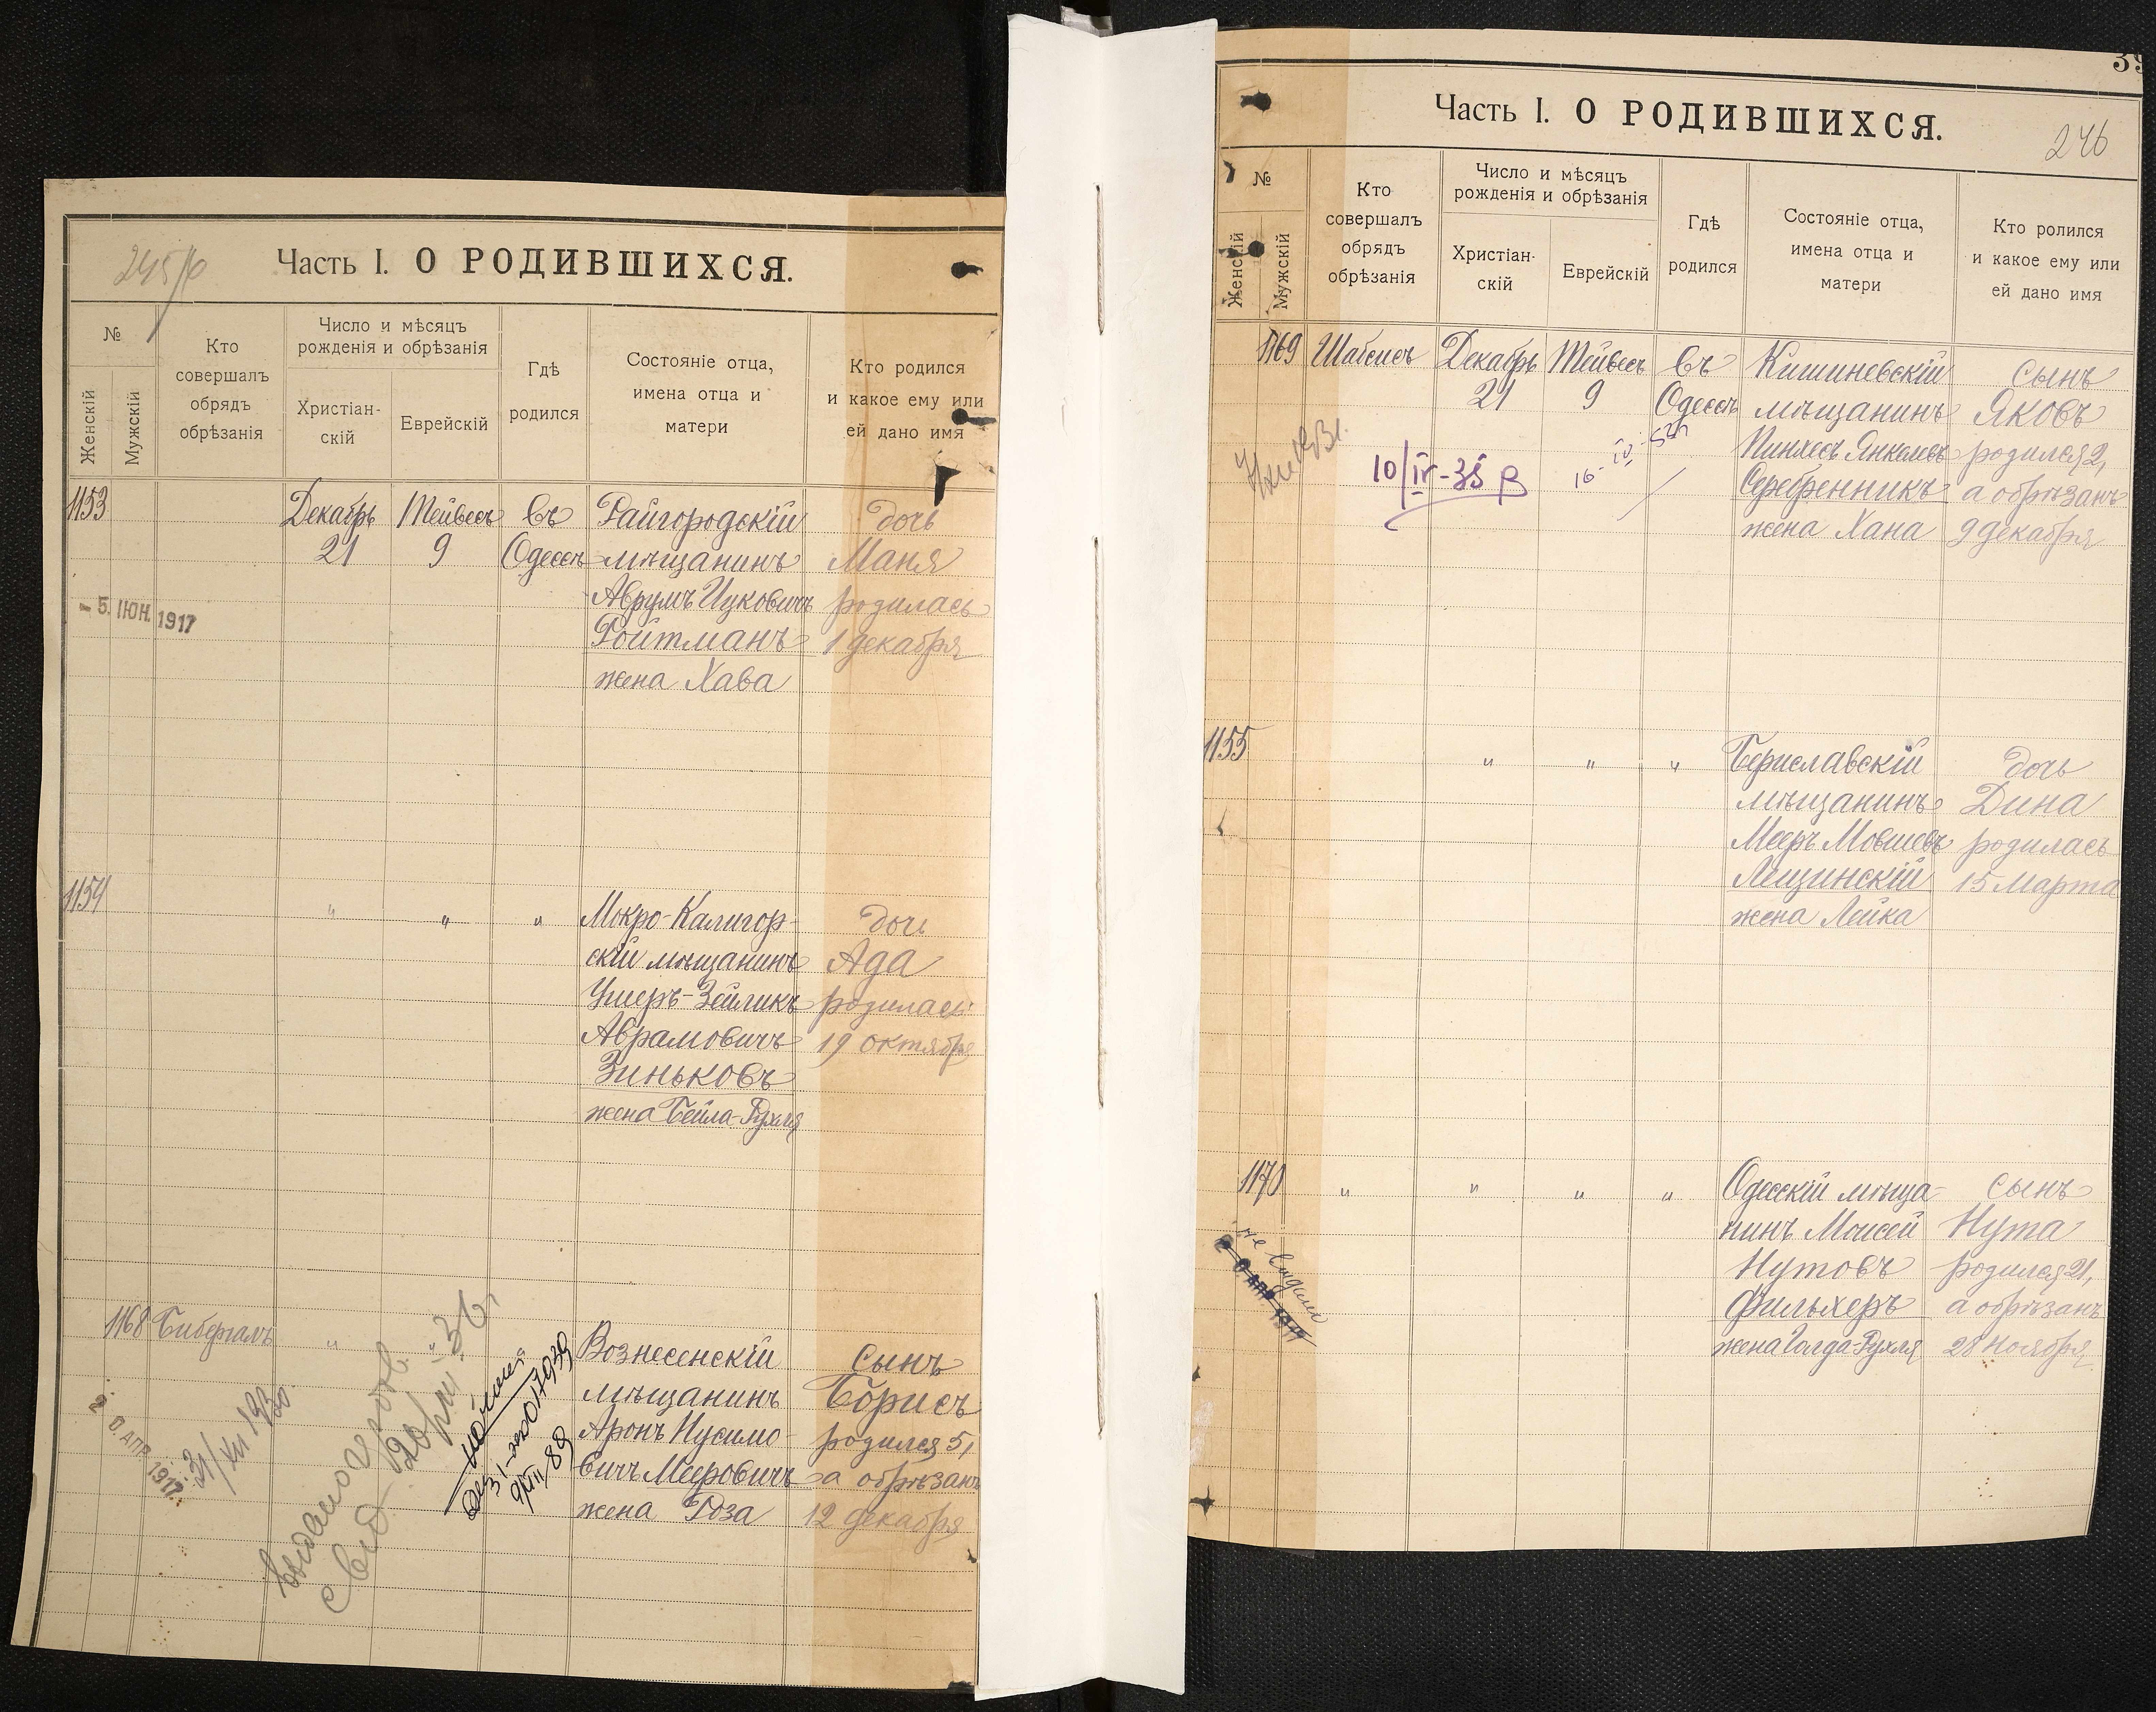 245
Часть I. О РОДИВШИХСЯ.
№
Женскій
Мужскій
Кто
совершалъ
обрядъ
обрѣзанія
Число и мѣсяцъ
рожденія и обрѣзанія
Христіан-
скій
Еврейскій
Гдѣ
родился
Состояніе отца,
имена отца и
матери
Кто родился
и какое ему или
ей дано имя
1153
Декабрь
21
Тейвесъ
9
въ
Одессѣ
Райгородскій
мѣщанинъ
Аврумъ Ицковичъ
Ройтманъ
жена Хава
дочь
Маня
родилась
1 декабря
- 5. ІЮН. 1917
1154
"
"
"
Мокро-Калигор-
скій мѣщанинъ
Ушеръ-Зейликъ
Аврамовичъ
Зиньковъ
жена Бейла-Рухля
дочь
Ада
родилась
19 октября
1168
Бибергалъ
"
"
Вознесенскій
мѣщанинъ
Аронъ Нусимо-
вичъ Мееровичъ
жена Роза
сынъ
Борисъ
родился 5,
а обрѣзанъ
12 декабря
2 0. АПР. 1917
31/XII 1930
39
Часть I. О РОДИВШИХСЯ.
246
№
Женскій
Мужскій
Кто
совершалъ
обрядъ
обрѣзанія
Число и мѣсяцъ
рожденія и обрѣзанія
Христіан-
скій
Еврейскій
Гдѣ
родился
Состояніе отца,
имена отца и
матери
Кто ролился
и какое ему или
ей дано имя
1169
Шабсисъ
Декабрь
21
Тейвесъ
9
въ
Одессѣ
Кишиневскій
мѣщанинъ
Пинхесъ Янкелевъ
Серебренникъ
жена Хана
сынъ
Яковъ
родился 2,
а обрѣзанъ
9 декабря
10/IV-35 р
1155
"
"
"
Бериславскій
мѣщанинъ
Мееръ Мовшевъ
Лещинскій
жена Лейка
дочь
Дина
родилась
15 Марта
1170
"
"
"
"
Одесскій мѣща-
нинъ Моисей
Нутовъ
Фильхеръ
жена Голда-Рухля
сынъ
Нута
родился 21,
а обрѣзанъ
28 Ноября
не выдано